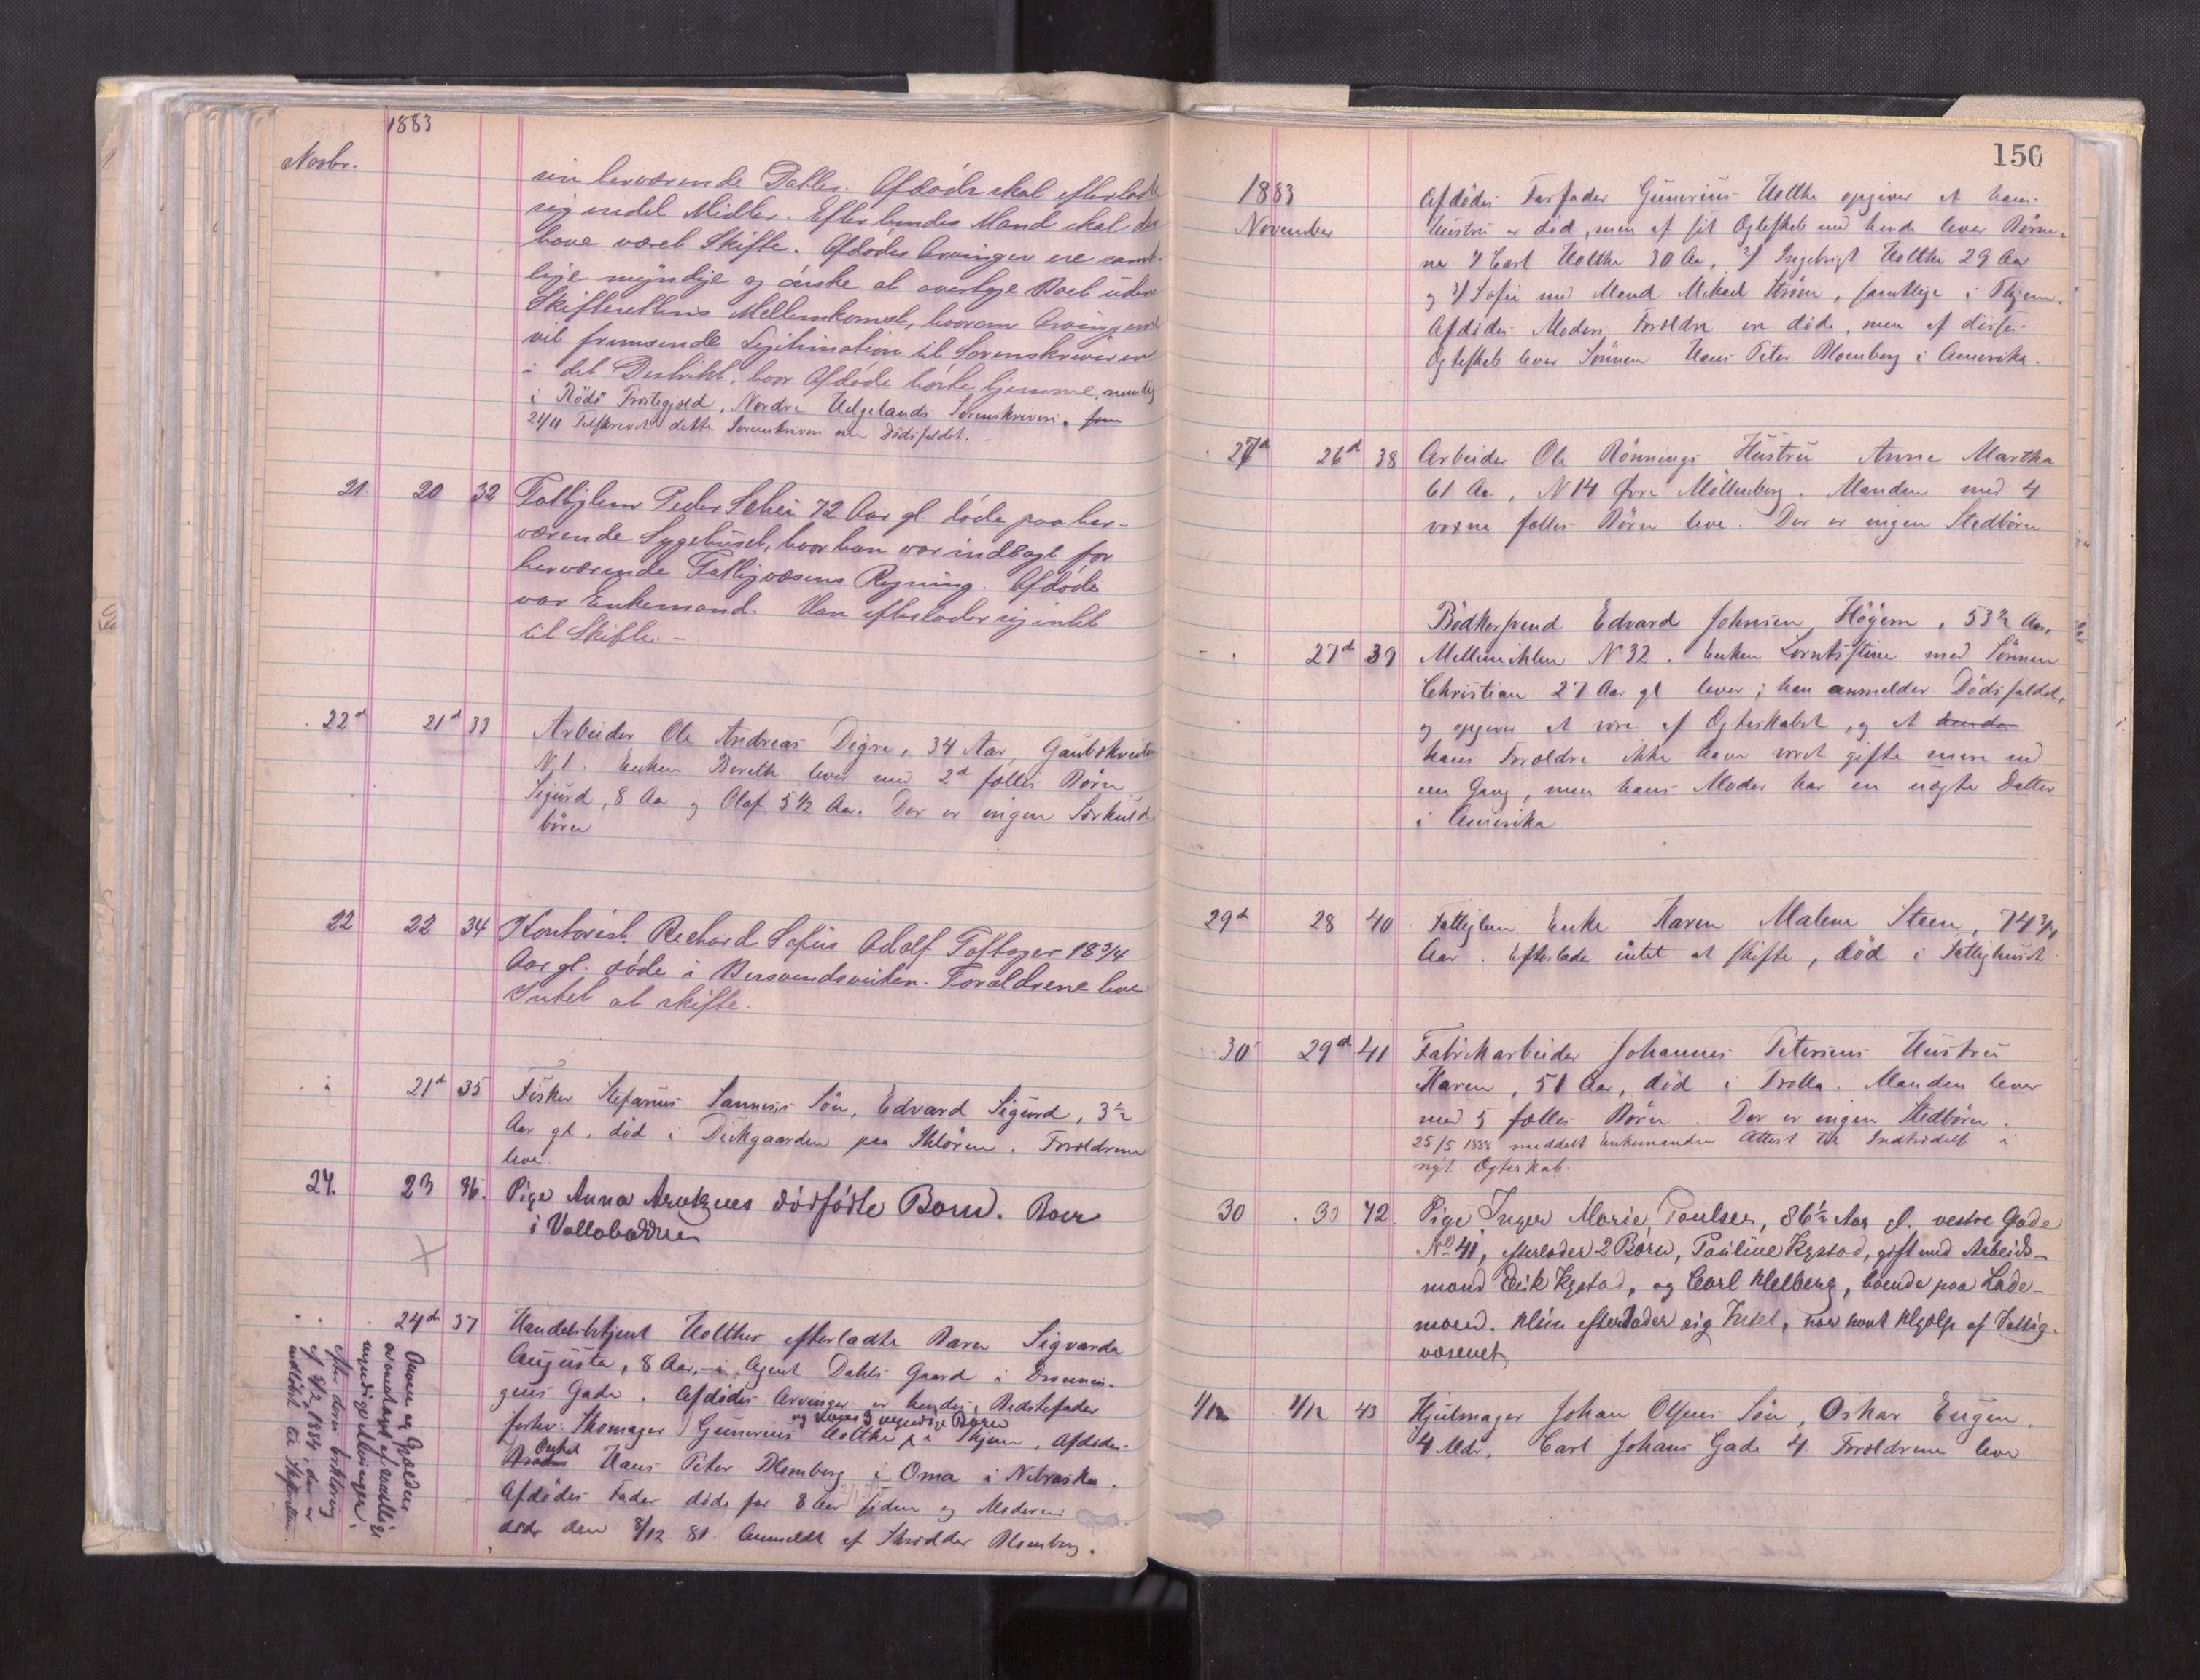 1883
Novbr.
sin herværende Datter. Afdøde skal efterlade
sig endel Midler. Efter hendes Mand skal der
have været Skifte. Afdødes Arvinger ere samt-
lige myndige og ønske at overtage Boet uden
Skifterettens Mellemkomst, hvorom Arvingerne
vil fremsende Legitimation til Sorenskriveren
i det Distrikt, hvor Afdøde hørte hjemme, nemlig
i Rödö Præstegjeld, Nordre Helgelands Sorenskriveri.
21/11 Tilskrevet dette Sorenskriveri om Dödsfaldet.
21 20 32 Fattiglem Peder Schei 72 Aar gl. døde paa her-
værende Sygehuset, hvor han var indlagt for
herværende Fattigvæsens Regning. Afdøde
var Enkemand. Han efterlader sig intet
til Skifte. -
22d 21d 33 Arbeider Ole Andreas Digre, 34 Aar,
N 1. Enken Bereth lever med 2d fælles Børn
Sigurd, 8 Aar og Olaf 5 1/2 Aar. Der er ingen Særkuld
børn
22 22 34 Kontorist Richard Sofus Adolf Toftager 18 3/4
Aar gl. døde i Bersvendsveiten. Forældrene leve
Intet at skifte.
21d 35 Fisker Stefanus Sannesis Søn, Edvard Sigurd, 3 1/2
Aar gl, død i Dickgaarden paa Ihlören. Forældrene
leve
24. 23 36. Pige Anna dödfödte Barn. Boer
i
24de 37 Handelsbetjent Holthes efterladte Barn Sigvarda
Augusta, 8 Aar, i Agent Dahls Gaard i Dronnin-
gens Gade. Afdødes Arvinger er hendes Bedstefader
og dennes 3 myndige Børn
forhv. Skomager Gunerius Holthe i Thjem, Afdødes
Onkel
Hans Peter Blomberg i Oma i Nebraska.
Afdødes Fader døde for 8 Aar siden og Moderen
døde den 8/12 81. Anmeldt af Skrædder Blomberg.
Arven og Gjælden
er vedtaget af samtlige
myndige Arvinger,
efter deres Erklæring
af 8/2 1884, der er
indlöbet til Skifteretten.
150
1883
November
Afdødes Farfader Gunerius Holthe opgiver at hans
Hustru er død, men af sit Ægteskab med hende lever Børne-
ne 1/ Carl Holthe 30 Aar, 2/ Ingebrigt Holthe 29 Aar
og 3/ Sofie med Mand Mikael Strøm, samtlige i Thjem.
Afdødes Moders Forældre ere døde, men af disses
Ægteskab lever Sönnen Hans Peter Blomberg i Amerika.
27de 26d 38 Arbeider Ole Rønnings Hustru Anne Martha
61 Aar, N 14 Øvre Möllenberg. Manden med 4
voxne fælles Børn leve. Der er ingen Stedbörn
Bødkersvend Edvard Johnsen Höyem, 53 1/2 Aar,
27d 39 Mellemihlen N 32. Enken Lorntsstine med Sönnen
Christian 27 Aar gl lever; han anmelder Dödsfaldet,
og opgiver at være af Ægteskabet, og at
hans Forældre ikke have været gifte mere end
een Gang, men hans Moder har en uægte Datter
i Amerika
29d 28 40 Fattiglem Enke Karen Malene Steen, 74 3/4
Aar. Efterlader intet at skifte, død i Fattighuset
30 29d 41 Fabrikarbeider Johannes Petersens Hustru
Karen, 51 Aar, død i Trolla. Manden lever
med 5 fælles Børn. Der er ingen Stedbørn.
25/5 1888 meddelt Enkemanden Attest til Indtrædelse i
nyt Ægteskab.
30 30 42. Pige Inger Marie Poulsen, 86 1/2 Aar gl. vestre Gade
No 41, efterlader 2 Børn, Pauline Kystad, gift med Arbeids-
mand Erik Kystad, og Carl Helberg, boende paa Lade-
moen. Hun efterlader sig Intet, har havt Hjælp af Fattig-
væsenet
1/12 1/12 43 Hjulmager Johan Olsens Søn, Oskar Eugen,
4 Mdr, Carl Johans Gade 4. Forældrene leve